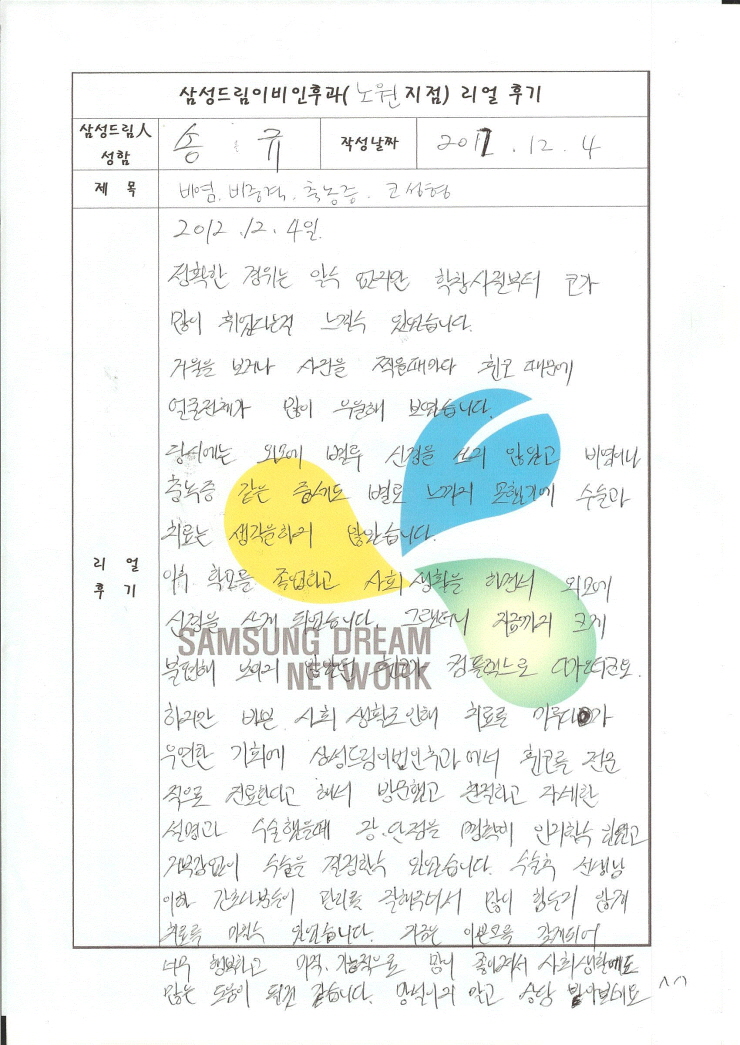 삼성드림이비인후과(노원지점) 리얼 후기
삼성드림人 성함
송 규
작성날짜
2012.12.4
제 목
비염, 비중격, 축농증, 코성형
리 얼 후 기
2012.12.4일.
정확한 경위는 알수 없지만 학창시절부터 코가
많이 휘었다는걸 느낄수 있었습니다.
거울을 보거나 사진을 찍을때마다 휜코 때문에
얼굴전체가 많이 우울해 보였습니다.
당시에는 외모에 별루 신경을 쓰지 않았고 비염이나
축농증 같은 증세도 별로 느끼지 못했기에 수술과
치료는 생각을하지 않았습니다.
이후 학교를 졸업하고 사회생활을 하면서 외모에
신경을 쓰게 되었습니다. 그랬더니 지금까지 크게
불편해 느끼지 않았던 휜코가 컴플렉스로 다가오더군요.
SAMSUNG DREAM
NETWORK
하지만 바쁜 사회 생활로인해 치료를 미루다가
우연한 기회에 삼성드림이비인후과에서 휜코를 전문
적으로 진료한다고 해서 방문했고 친절하고 자세한
설명과 수술했을때 장.단점을 명확히 인지할수 있었고
거부감없이 수술을 결정할수 있었습니다. 수술후 선생님
이하 간호사분들이 관리를 잘해주셔서 많이 힘들지 않게
치료를 마칠수 있었습니다. 지금은 이쁜코를 갖게되어
너무 행복하고 미적.기능적으로 많이 좋아져서 사회생활에도
많은 도움이 될것 같습니다. 망설이지 말고 상담 받아보세요 ^^